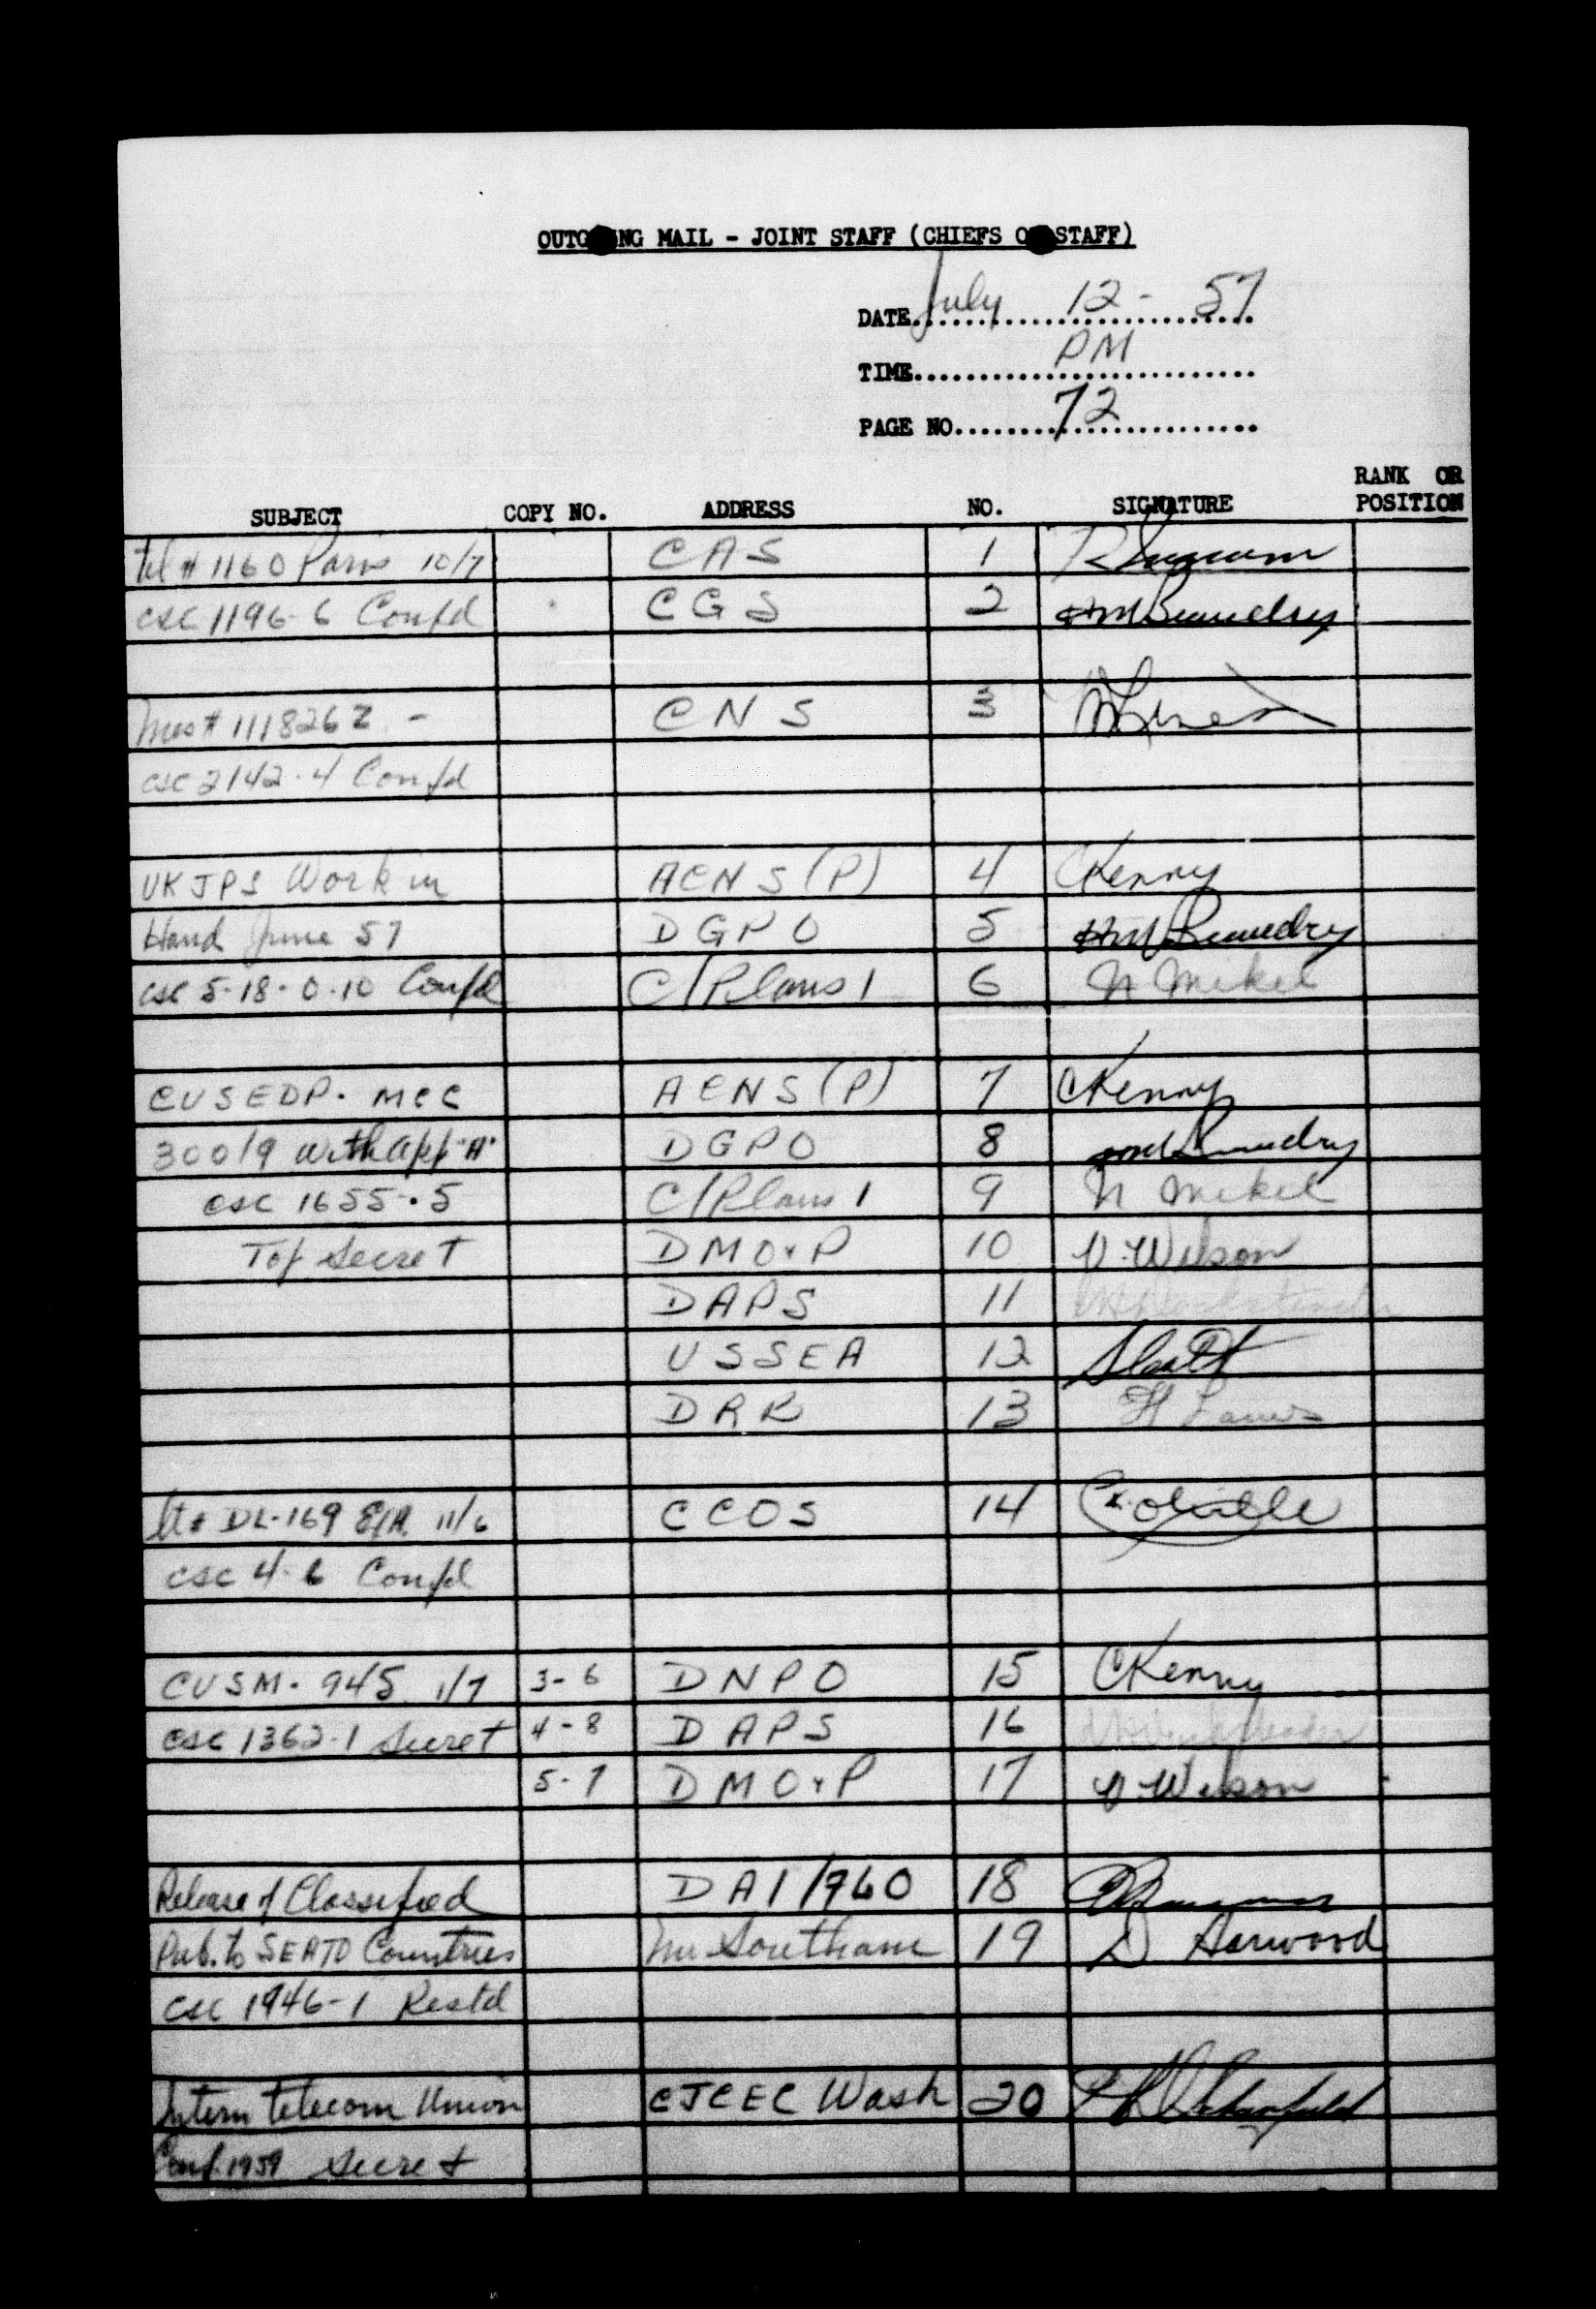 OUTGOING MAIL - JOINT STAFF (CHIEFS OF STAFF)
DATE July 12 - 57
TIME PM
PAGE NO. 72
SUBJECT COPY NO. ADDRESS NO. SIGNATURE RANK OR POSITION
Tel # 1160 Paris 10/7 CAS 1
CSC 1196-6 Confd CGS 2 HM Beaudry
Mes # 111826Z - CNS 3
CSC 2142-4 Confd
UK JPS Work in ACNS (P) 4 C Kenny
Hand June 57 DGPO 5 HM Beaudry
CSC 5-18-0-10 Confd C/Plans 1 6 N Mikel
CUSEDP. MCC ACNS (P) 7 C Kenny
300/9 with App "A" DGPO 8 HM Beaudry
CSC 1655-5 C/Plans 1 9 N Mikel
Top Secret DMO & P 10 V. Wilson
DAPS 11
USSEA 12
DRR 13
Ltr DL-169 E/A 11/6 CCOS 14
CSC 4-6 Confd
CUSM-945 1/7 3-6 DNPO 15 C Kenny
CSC 1362-1 Secret 4-8 DAPS 16
5-7 DMO & P 17 V. Wilson
Release of Classified DAI/960 18
Pub. to SEATO Countries Mr Southam 19 D Harwood
CSC 1946-1 Restd
Intern Telecom Union CJCEC Wash 20
Conf. 1959 Secret